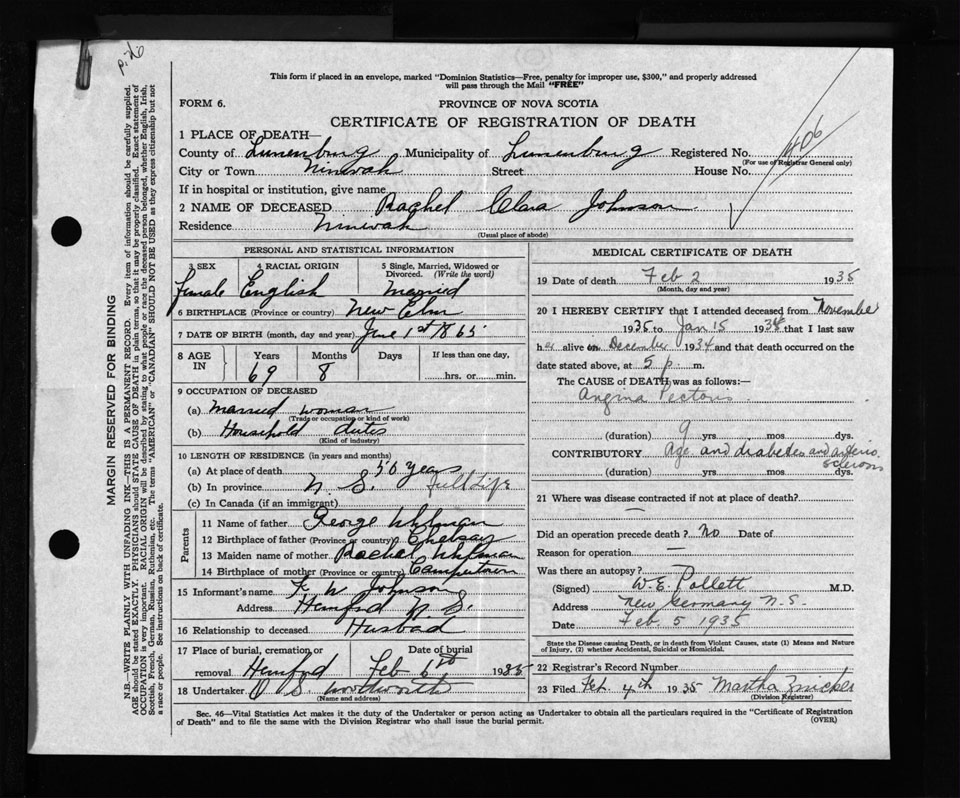 p. 26
This form if placed in an envelope, marked "Dominion Statistics—Free, penalty for improper use, $300," and properly addressed
will pass through the Mail "FREE"
FORM 6.
PROVINCE OF NOVA SCOTIA
CERTIFICATE OF REGISTRATION OF DEATH
406
1 PLACE OF DEATH—
County of Lunenburg Municipality of Lunenburg Registered No.
(For use of Registrar General only)
City or Town Ninevah Street House No.
If in hospital or institution, give name
2 NAME OF DECEASED Rachel Clara Johnson
Residence Ninevah
(Usual place of abode)
MARGIN RESERVED FOR BINDING
N.B.—WRITE PLAINLY WITH UNFADING INK—THIS IS A PERMANENT RECORD. Every item of information should be carefully supplied.
AGE should be stated EXACTLY. PHYSICIANS should STATE CAUSE OF DEATH in plain terms, so that it may be properly classified. Exact statement of
OCCUPATION is very important. RACIAL ORIGIN will be described by stating to what people or race the deceased person belonged, whether English, Irish,
Scottish, French, German, Russian, Ruthenian, etc. The terms "AMERICAN" or "CANADIAN" SHOULD NOT BE USED as they express citizenship but not
a race or people. See instructions on back of certificate.
PERSONAL AND STATISTICAL INFORMATION
3 SEX 4 RACIAL ORIGIN 5 Single, Married, Widowed or
Divorced. (Write the word)
Female English Married
6 BIRTHPLACE (Province or country) New Elm
7 DATE OF BIRTH (month, day and year) June 1st 1865
8 AGE IN Years Months Days If less than one day,
69 8 hrs. or min.
9 OCCUPATION OF DECEASED
(a) Married woman
(Trade or occupation or kind of work)
(b) Household duties
(Kind of industry)
10 LENGTH OF RESIDENCE (in years and months)
(a) At place of death 50 years
(b) In province N. S. Full Life
(c) In Canada (if an immigrant)
Parents
11 Name of father George Whitman
12 Birthplace of father (Province or country) Chelsay
13 Maiden name of mother Rachel
14 Birthplace of mother (Province or country)
15 Informant's name F. W Johnson
Address Hemford N. S.
16 Relationship to deceased Husbad
17 Place of burial, cremation or Date of burial
removal Hemford Feb 6th 1935
18 Undertaker
(Name and address)
MEDICAL CERTIFICATE OF DEATH
19 Date of death Feb 2 1935
(Month, day and year)
20 I HEREBY CERTIFY that I attended deceased from November
1935 to Jan 15 1935 that I last saw
her alive on December 1934 and that death occurred on the
date stated above, at 5 p. m.
The CAUSE OF DEATH was as follows:—
Angina Pectoris
(duration) 9 yrs. mos. dys.
CONTRIBUTORY Age and diabetes and arterio
sclerosis
(duration) yrs. mos. dys.
21 Where was disease contracted if not at place of death?
—
Did an operation precede death? No Date of
Reason for operation —
Was there an autopsy? —
(Signed) W. E. Pollett M.D.
Address New Germany N. S.
Date Feb. 5 1935
State the Disease causing Death, or in death from Violent Causes, state (1) Means and Nature
of Injury, (2) whether Accidental, Suicidal or Homicidal.
22 Registrar's Record Number
23 Filed Feb. 4th 1935 Martha
(Division Registrar)
Sec. 46—Vital Statistics Act makes it the duty of the Undertaker or person acting as Undertaker to obtain all the particulars required in the "Certificate of Registration
of Death" and to file the same with the Division Registrar who shall issue the burial permit.
(OVER)